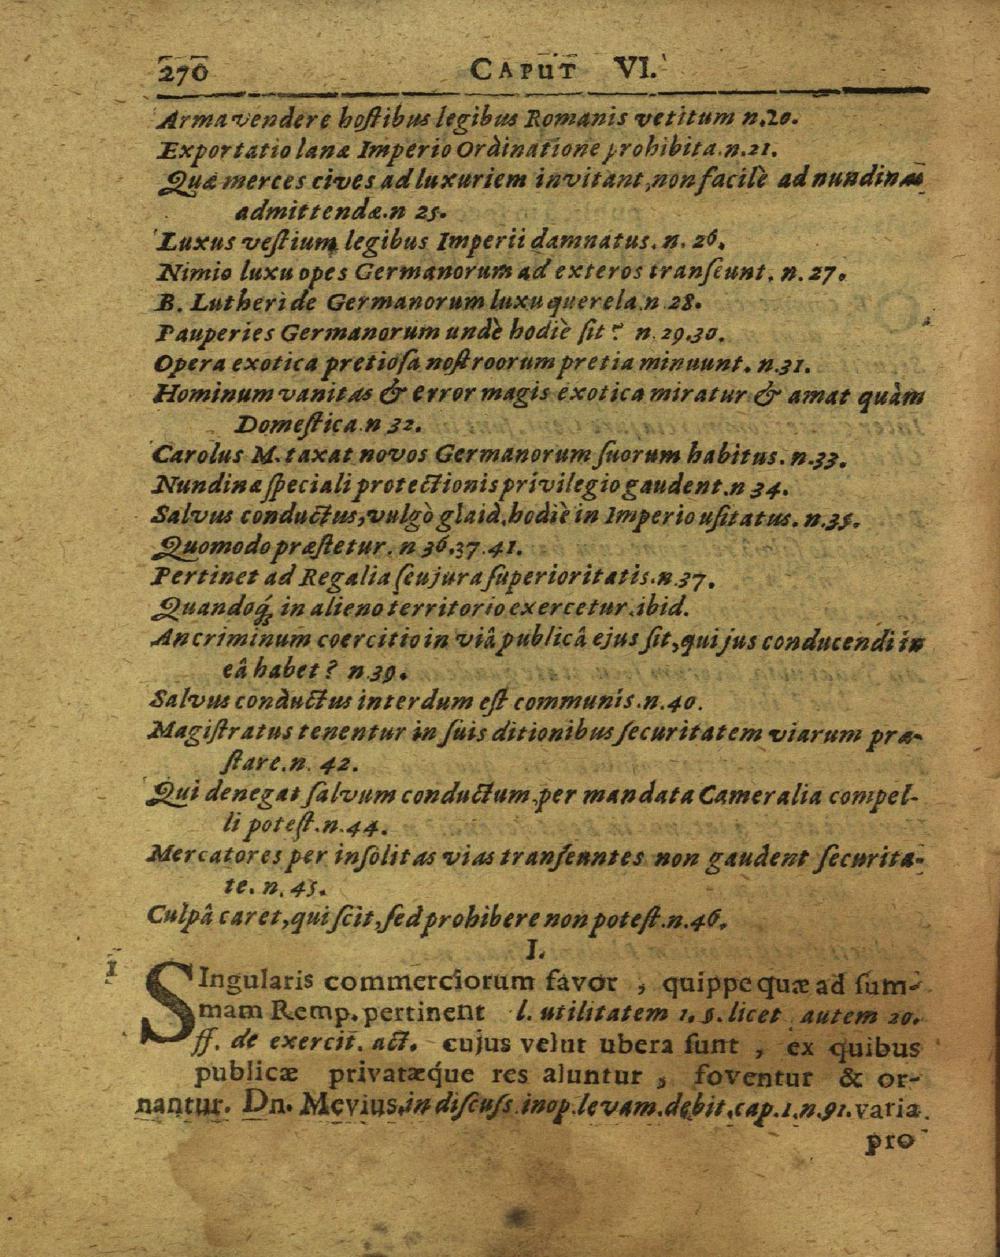 270 CAPUT VI.
Arma vendere hoſtibus legibus Romanis vetitum n.20.
Exportatio lanæ Imperio Ordinatione prohibita.n.21.
Quæ merces cives ad luxuriem invitant,non facilè ad nundinas
admittendæ.n 25.
Luxus veſtium legibus Imperii damnatus. n. 26.
Nimio luxu opes Germanorum ad exteros tranſeunt. n. 27.
B. Lutheri de Germanorum luxu querela.n 28.
Pauperies Germanorum undè hodiè ſit? n.29.30.
Opera exotica pretioſa noſtroorum pretia minuunt. n.31.
Hominum vanitas & error magis exotica miratur & amat quàm
Domeſtica.n 32.
Carolus M. taxat novos Germanorum ſuorum habitus. n.33.
Nundinæ ſpeciali protectionis privilegio gaudent.n 34.
Salvus conductus,vulgò glaid,hodiè in Imperio uſitatus. n.35.
Quomodo præſtetur. n 36.37.41.
Pertinet ad Regalia ſeu jura ſuperioritatis.n.37.
Quandoq́; in alieno territorio exercetur.ibid.
An criminum coercitio in viâ publicâ ejus ſit,qui jus conducendi in
eâ habet? n.39.
Salvus conductus interdum eſt communis.n.40.
Magiſtratus tenentur in ſuis ditionibus ſecuritatem viarum præ-
ſtare.n. 42.
Qui denegat ſalvum conductum,per mandata Cameralia compel-
li poteſt.n.44.
Mercatores per inſolitas vias tranſeuntes non gaudent ſecurita-
te. n. 45.
Culpâ caret,qui ſcit,ſed prohibere non poteſt.n.46.
I.
1 SIngularis commerciorum favor , quippe quæ ad ſum-
mam Remp. pertinent l. utilitatem 1. §. licet autem 20.
ff. de exercit. act. cujus velut ubera ſunt , ex quibus
publicæ privatæque res aluntur , foventur & or-
nantur. Dn. Mevius.in diſcuſſ.inop.levam.debit.cap.1.n.91.varia
pro